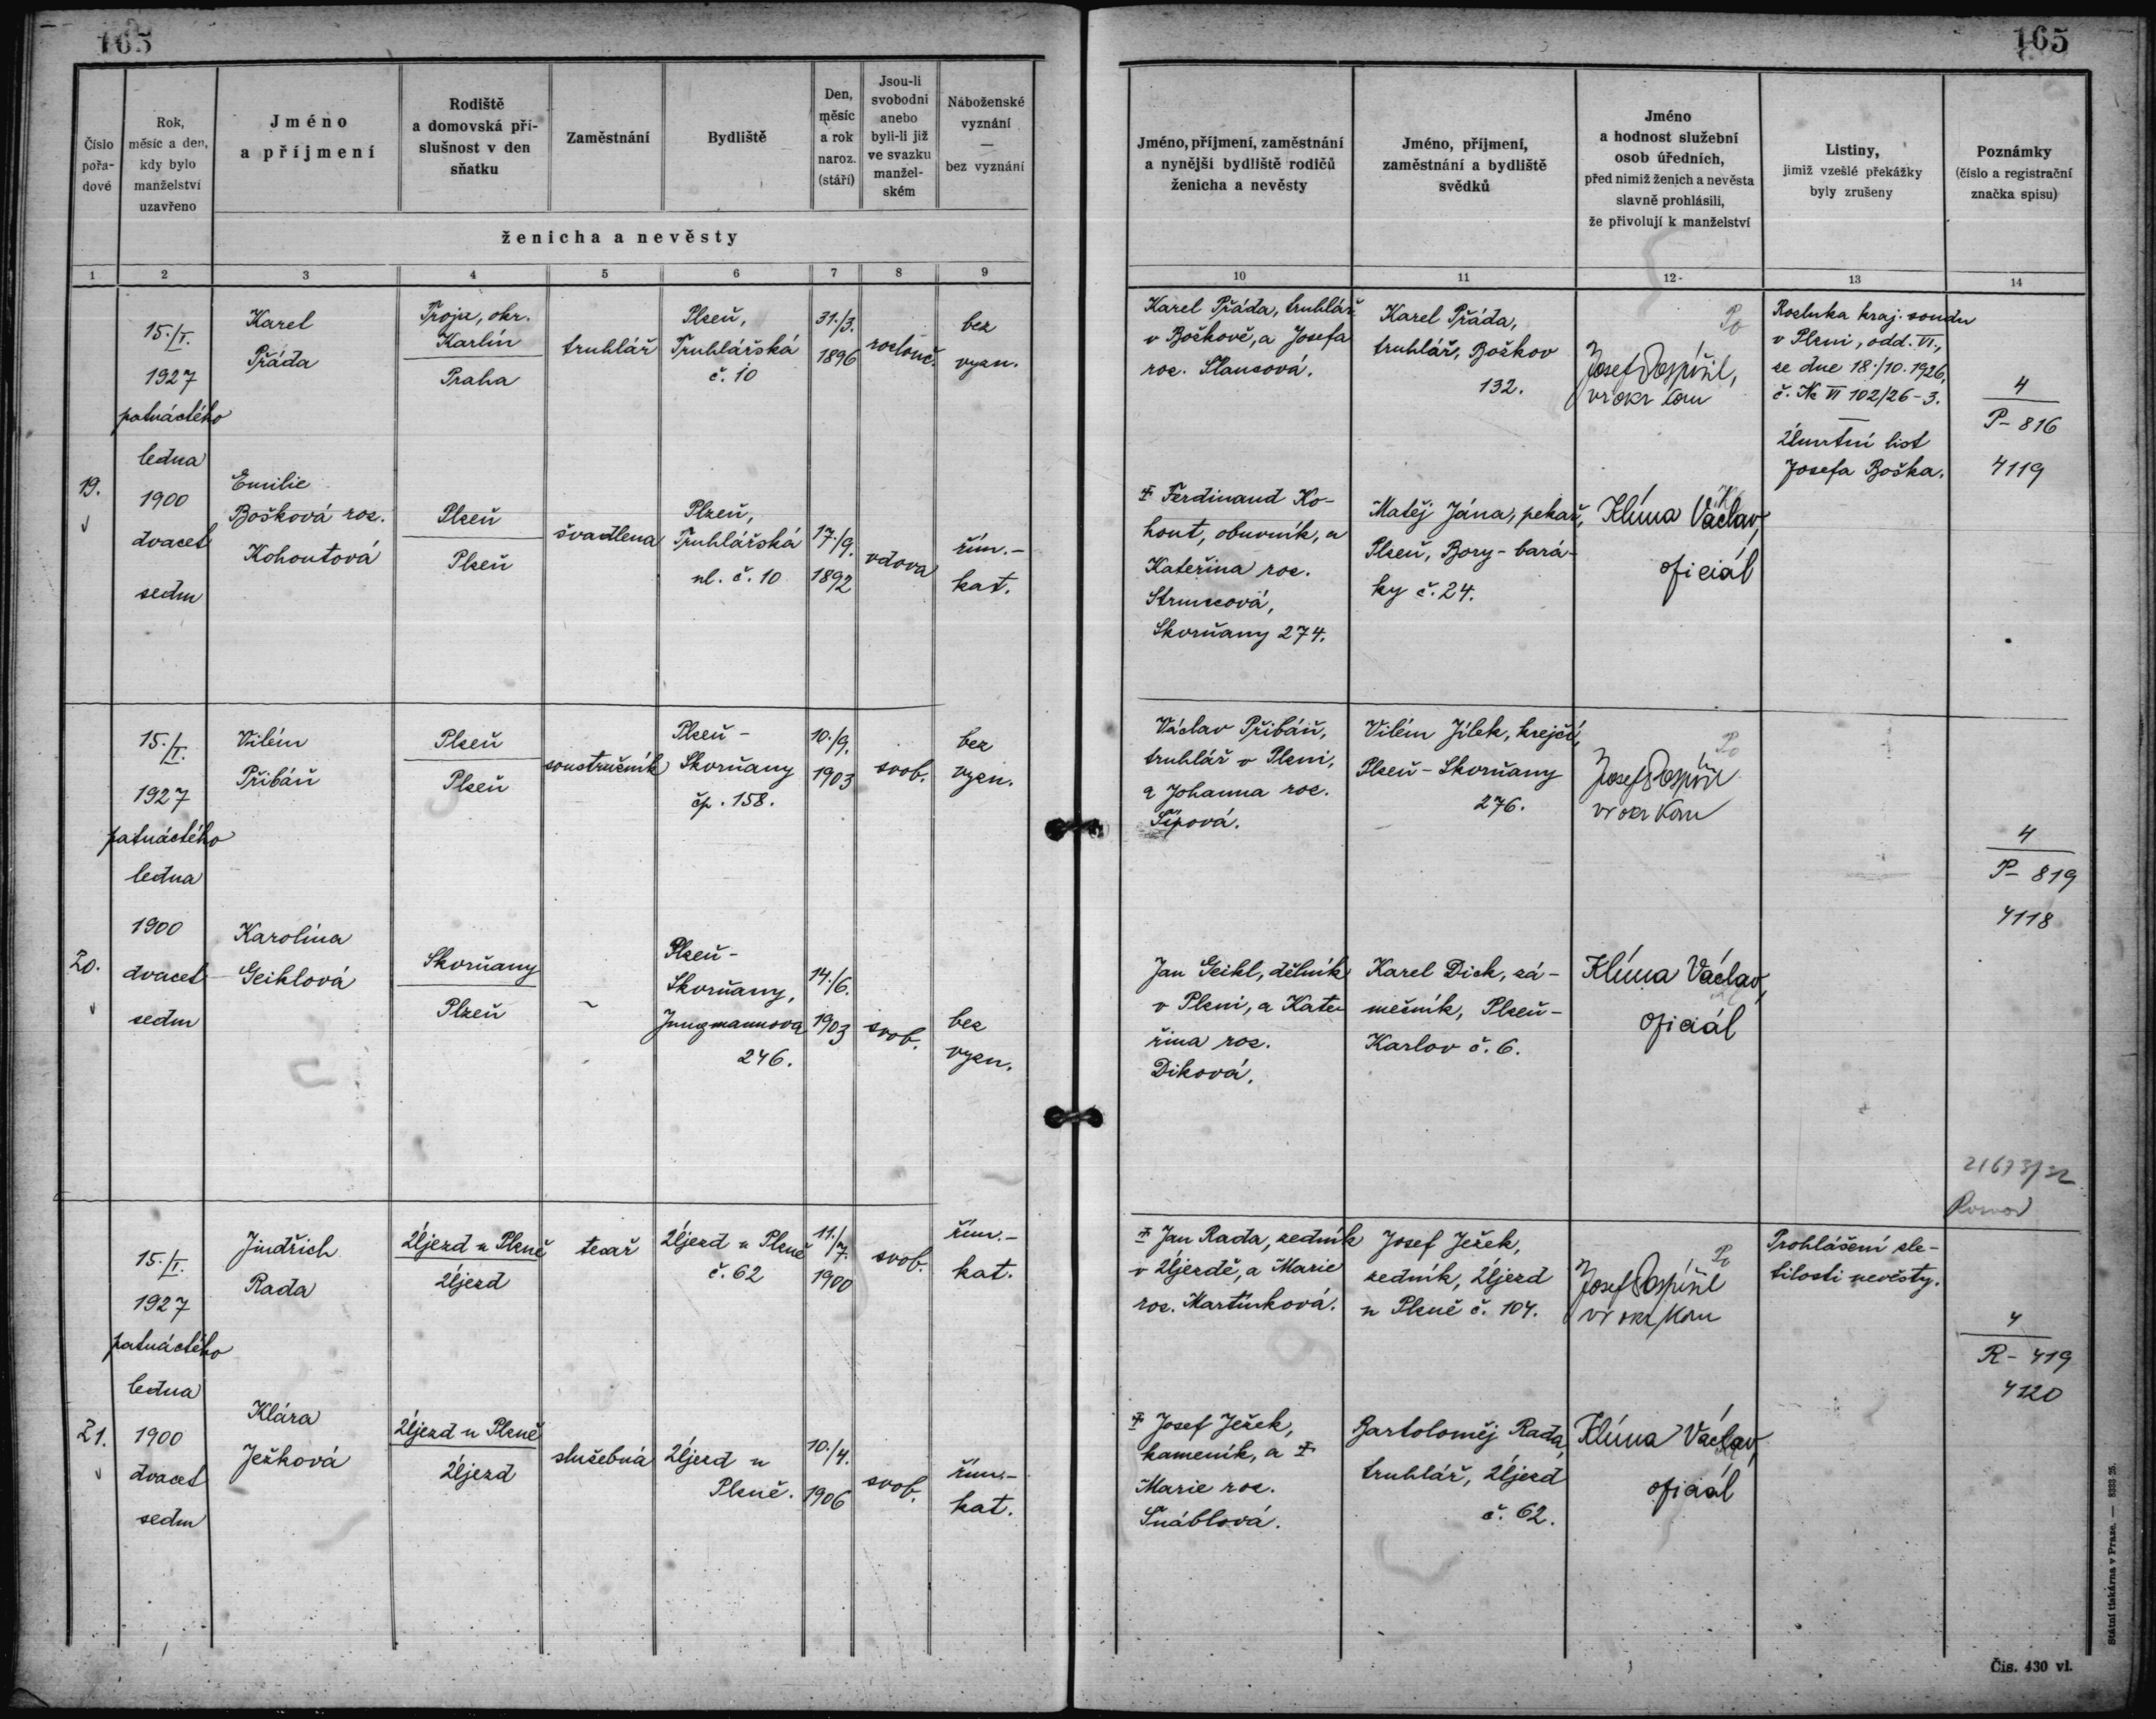 165
165
Číslo pořadové
Rok, měsíc a den, kdy bylo manželství uzavřeno
Jméno a příjmení
Rodiště a domovská příslušnost v den sňatku
Zaměstnání
Bydliště
Den, měsíc a rok naroz. (stáří)
Jsou-li svobodni anebo byli-li již ve svazku manželském
Náboženské vyznání — bez vyznání
ženicha a nevěsty
1 2 3 4 5 6 7 8 9
Jméno, příjmení, zaměstnání a nynější bydliště rodičů ženicha a nevěsty
Jméno, příjmení, zaměstnání a bydliště svědků
Jméno a hodnost služební osob úředních, před nimiž ženich a nevěsta slavně prohlásili, že přivolují k manželství
Listiny, jimiž vzešlé překážky byly zrušeny
Poznámky (číslo a registrační značka spisu)
10 11 12 13 14
19.
15./I.
1927
patnáctého
ledna
1900
dvacet
sedm
Karel
Přáda
Troja, okr.
Karlín
Praha
truhlář
Plzeň,
Truhlářská
č. 10
31./3.
1896
rozlouč.
bez
vyzn.
Karel Přáda, truhlář
v Boškově, a Josefa
roz. Slancová.
Karel Přáda,
truhlář, Boškov
132.
Josef Pospíšil,
Rozluka kraj. soudu
v Plzni, odd. VI.,
ze dne 18./10. 1926,
č. Nc VI 102/26-3.
Úmrtní list
Josefa Boška.
4
P- 816
4119
Emilie
Bošková roz.
Kohoutová
Plzeň
Plzeň
švadlena
Plzeň,
Truhlářská
ul. č. 10
17./9.
1892
vdova
řím.-
kat.
Ferdinand Ko-
hout, obuvník, a
Kateřina roz.
Skvrňany 274.
Matěj Jána, pekař,
Plzeň, Bory-bará-
ky č. 24.
Klíma Václav,
oficiál
20.
15./I.
1927
patnáctého
ledna
1900
dvacet
sedm
Vilém
Přibáň
Plzeň
Plzeň
soustružník
Plzeň-
Skvrňany
čp. 158.
10./9.
1903
svob.
bez
vyzn.
Václav Přibáň,
truhlář v Plzni,
a Johanna roz.
Šípová.
Vilém Jílek, krejčí,
Plzeň-Skvrňany
276.
Josef Pospíšil
4
P- 819
4118
Karolina
Geihlová
Skvrňany
Plzeň
Plzeň-
Skvrňany,
Jungmannova
246.
14./6.
1903
svob.
bez
vyzn.
Jan Geihl, dělník
v Plzni, a Kate-
řina roz.
Diková.
Karel Dick, zá-
mečník, Plzeň-
Karlov č. 6.
Klíma Václav,
oficiál
21.
15./I.
1927
patnáctého
ledna
1900
dvacet
sedm
Jindřich
Rada
Újezd u Plzně
Újezd
tesař
Újezd u Plzně
č. 62
11./7.
1900
svob.
řím.-
kat.
Jan Rada, zedník
v Újezdě, a Marie
roz. Martínková.
Josef Ježek,
zedník, Újezd
u Plzně č. 104.
Josef Pospíšil
Prohlášení zle-
tilosti nevěsty.
4
R- 419
4120
Klára
Ježková
Újezd u Plzně
Újezd
služebná
Újezd u
Plzně.
10./4.
1906
svob.
řím.-
kat.
Josef Ježek,
kameník, a
Marie roz.
Šnáblová.
Bartoloměj Rada,
truhlář, Újezd
č. 62.
Klíma Václav,
oficiál
Státní tiskárna v Praze. — 8333 25.
Čís. 430 vl.